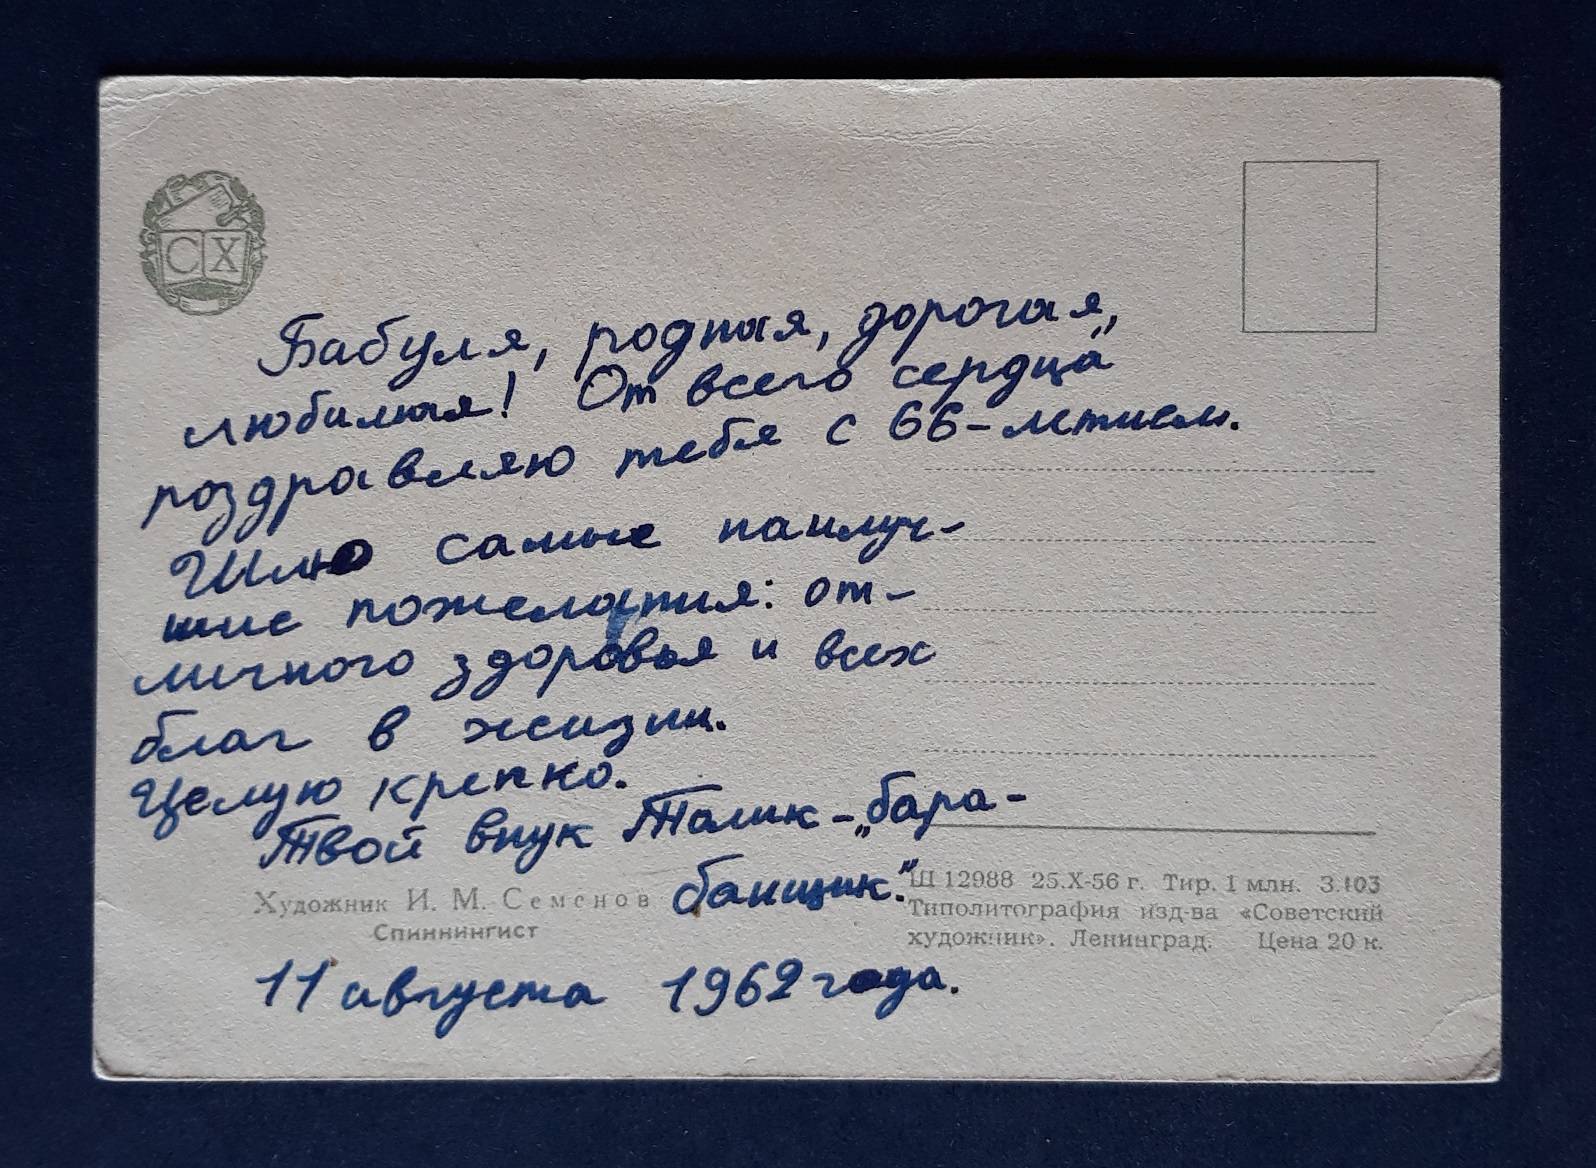 СХ
Бабуля, родная, дорогая,
любимая! От всего сердца
поздравляю тебя с 66-летием.
Шлю самые наилуч-
шие пожелания: от-
личного здоровья и всех
благ в жизни.
Целую крепко.
Твой внук Талик-„бара-
банщик".
Художник И. М. Семенов
Спиннингист
Ш 12988 25.X-56 г. Тир. 1 млн. З.103
Типолитография изд-ва «Советский
художник». Ленинград. Цена 20 к.
11 августа 1962 года.